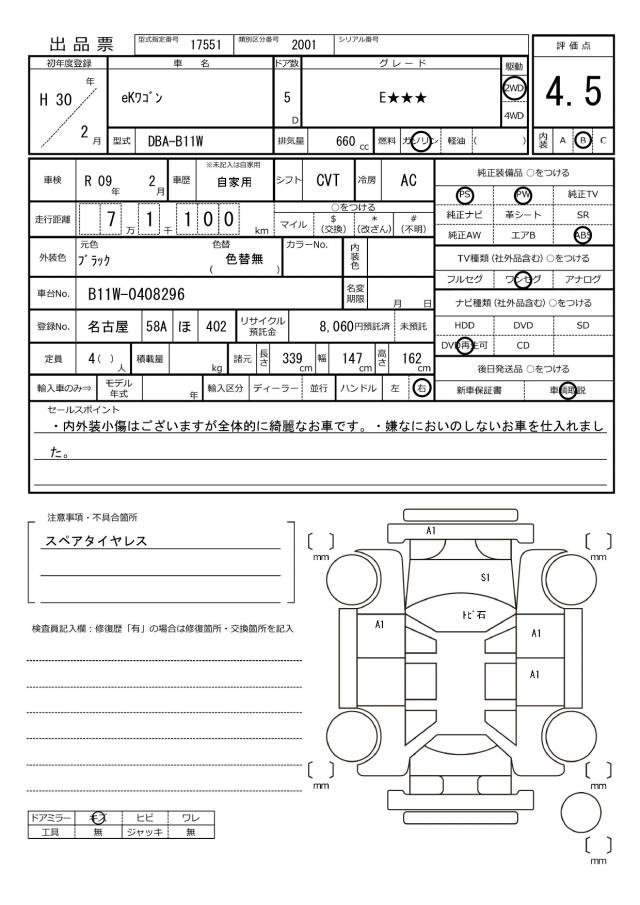 出品票 型式指定番号 17551 類別区分番号 2001 シリアル番号
評価点
4.5
初年度登録 車名 ドア数 グレード 駆動
H 30 年 2 月 eKワゴン 5 D E★★★ 2WD 4WD
型式 DBA-B11W 排気量 660 cc 燃料 ガソリン 軽油 ( ) 内装 A B C
車検 R 09 年 2 月 車歴 ※未記入は自家用 自家用 シフト CVT 冷房 AC
純正装備品 ○をつける
PS PW 純正TV
純正ナビ 革シート SR
純正AW エアB ABS
走行距離 7 万 1 千 1 0 0 km ○をつける マイル $ (交換) * (改ざん) # (不明)
外装色 元色 ブラック 色替 ( 色替無 ) カラーNo. 内装色
TV種類 (社外品含む) ○をつける
フルセグ ワンセグ アナログ
車台No. B11W-0408296 名変期限 月 日
ナビ種類 (社外品含む) ○をつける
HDD DVD SD
DVD再生可 CD
登録No. 名古屋 58A ほ 402 リサイクル預託金 8,060円預託済 未預託
定員 4( ) 人 積載量 kg 諸元 長さ 339 cm 幅 147 cm 高さ 162 cm
後日発送品 ○をつける
新車保証書 車輌取説
輸入車のみ⇒ モデル年式 年 輸入区分 ディーラー 並行 ハンドル 左 右
セールスポイント
・内外装小傷はございますが全体的に綺麗なお車です。・嫌なにおいのしないお車を仕入れまし
た。
注意事項・不具合箇所
スペアタイヤレス
検査員記入欄：修復歴「有」の場合は修復箇所・交換箇所を記入
A1
〔 〕 mm
〔 〕 mm
S1
トビ石
A1
A1
A1
〔 〕 mm
〔 〕 mm
〔 〕 mm
ドアミラー キズ ヒビ ワレ
工具 無 ジャッキ 無